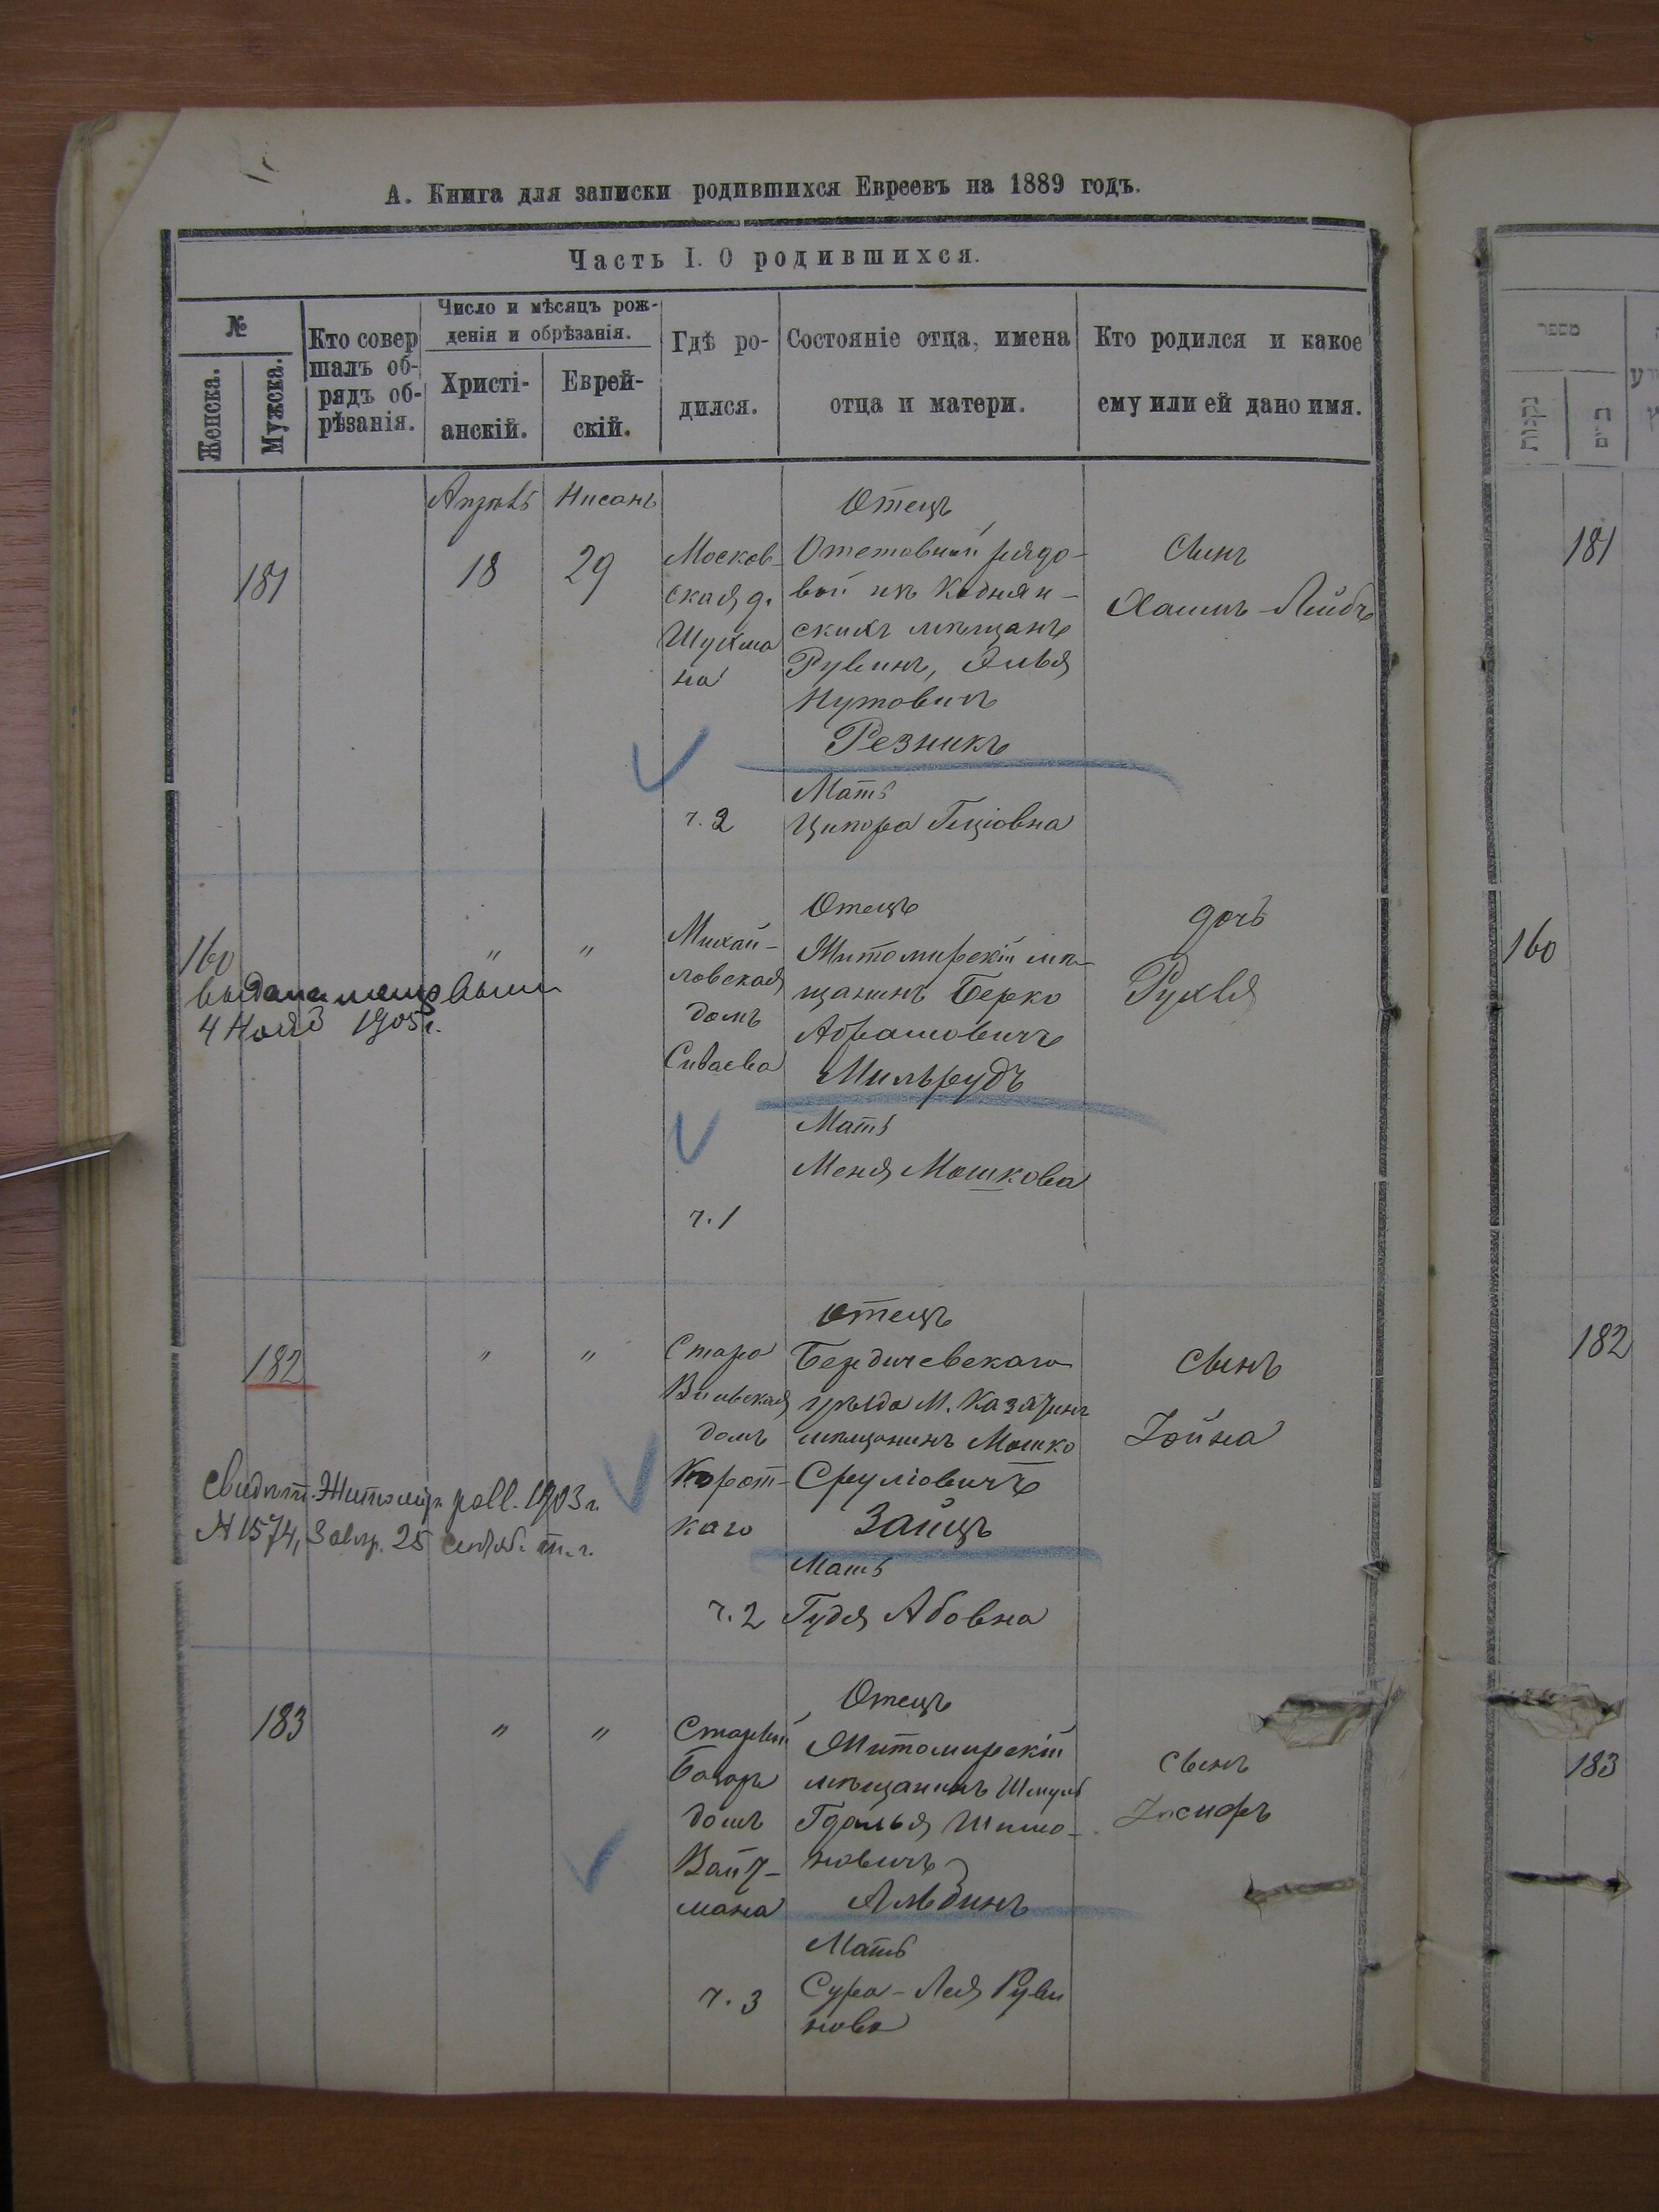 А. Книга для записки родившихся Евреевъ на 1889 годъ.
Часть I. О родившихся.
№
Женска.
Мужска.
Кто совер
шалъ об-
рядъ об-
рѣзанія.
Число и мѣсяцъ рож-
денія и обрѣзанія.
Христі-
анскій.
Еврей-
скій.
Гдѣ ро-
дился.
Состояніе отца, имена
отца и матери.
Кто родился и какое
ему или ей дано имя.
Апрѣль
Нисанъ
181
18
29
Москов-
ская д.
Шухма
на
ч. 2
Отецъ
рядо-
вой изъ Коднян-
скихъ мѣщанъ
Рувинъ, Элья
Нутовичъ
Резникъ
Мать
Ципора
Сынъ
Хаимъ-Лейбъ
160
выдана
4 Нояб 1905 г.
"
"
Михай-
ловская
домъ
ч. 1
Отецъ
Житомирскій мѣ-
щанинъ Берко
Абрамовичъ
Мильрудъ
Мать
Меня Мошкова
дочь
Рухля
182
"
"
Старо
Вильская
домъ
Корот-
каго
ч. 2
Отецъ
Бердичевскаго
уѣзда М. Казатинъ
мѣщанинъ Мошко
Сруліовичъ
Заицъ
Мать
Гудя Абовна
Сынъ
Іойна
1903 г.
№ 1574, 25 т. г.
183
"
"
Старый
Базаръ
домъ
Вайч-
мана
ч. 3
Отецъ
Житомирскій
мѣщанинъ Шмуль
Гдалья Шимо-
новичъ
Альбинъ
Мать
Сура-Лея Руви
нова
Сынъ
Іосифъ
מספר
נקבות
181
160
182
183